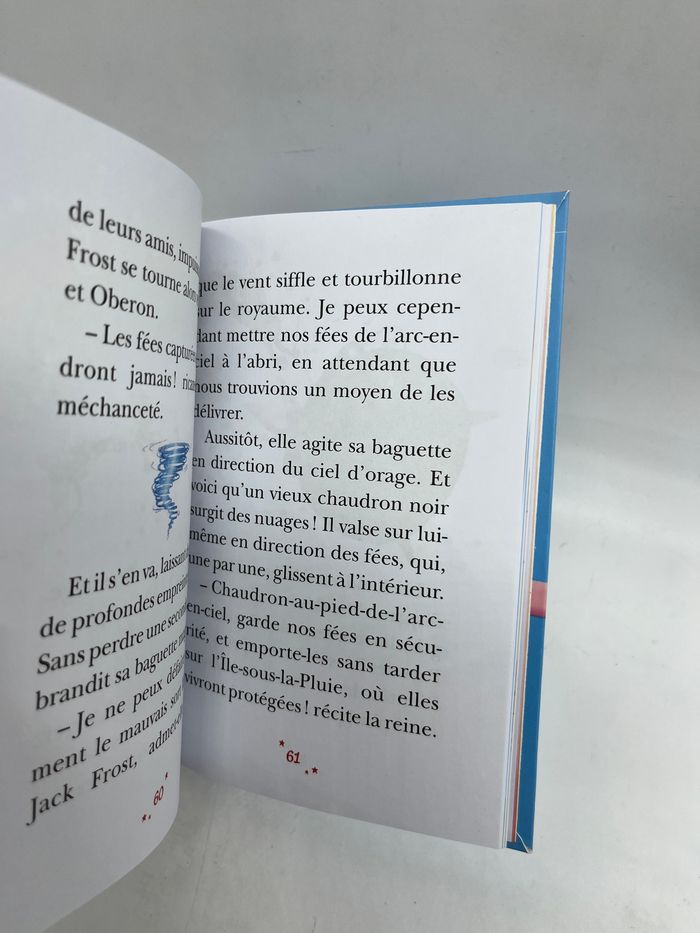 de leurs amis,
Frost se tourne
et Oberon.
– Les fées
dront jamais!
méchanceté.
Et il s'en va,
de profondes
Sans perdre une
brandit sa baguette
– Je ne peux
ment le mauvais
Jack Frost,
60
que le vent siffle et tourbillonne
sur le royaume. Je peux cepen-
dant mettre nos fées de l'arc-en-
ciel à l'abri, en attendant que
nous trouvions un moyen de les
délivrer.
Aussitôt, elle agite sa baguette
en direction du ciel d'orage. Et
voici qu'un vieux chaudron noir
surgit des nuages! Il valse sur lui-
même en direction des fées, qui,
une par une, glissent à l'intérieur.
– Chaudron-au-pied-de-l'arc-
en-ciel, garde nos fées en sécu-
rité, et emporte-les sans tarder
sur l'Île-sous-la-Pluie, où elles
vivront protégées! récite la reine.
61